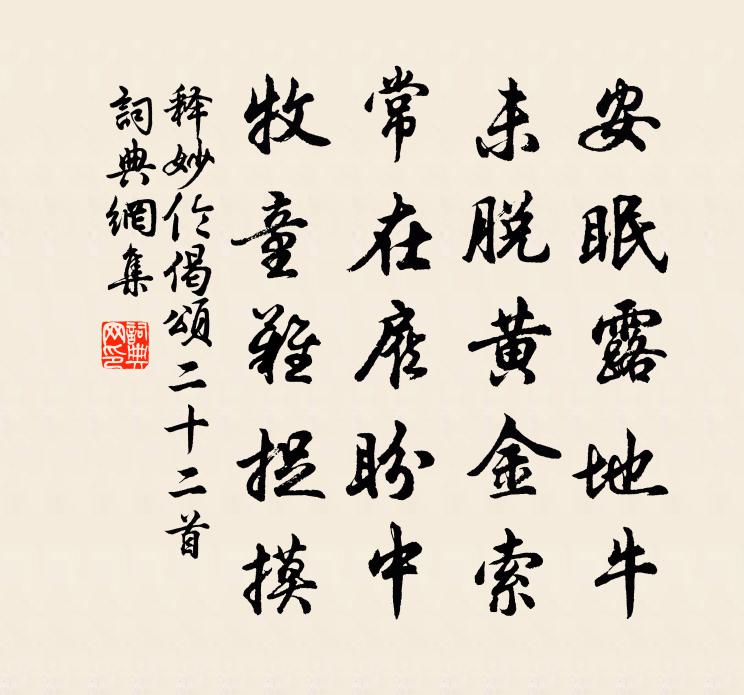 安眠露地牛
未脱黄金索
常在顾盼中
牧童難捉摸
释妙伦偈頌二十二首
詞典網集
詞典网印